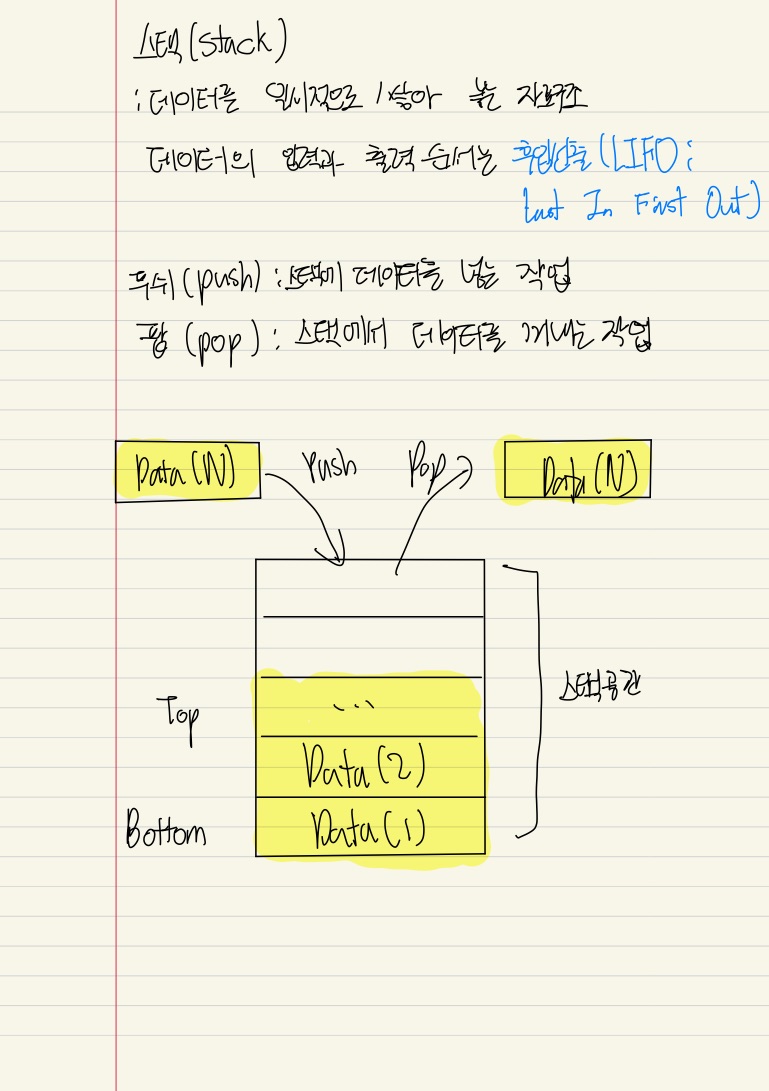 스택(stack)
: 데이터를 일시적으로 쌓아 놓는 자료구조
데이터의 입력과 출력 순서는 후입선출(LIFO:
Last In First Out)
푸쉬(push) : 스택에 데이터를 넣는 작업
팝 (pop) : 스택에서 데이터를 꺼내는 작업
Data(N) Push Pop Data(N)
Top ... 스택공간
Data(2)
Bottom Data(1)